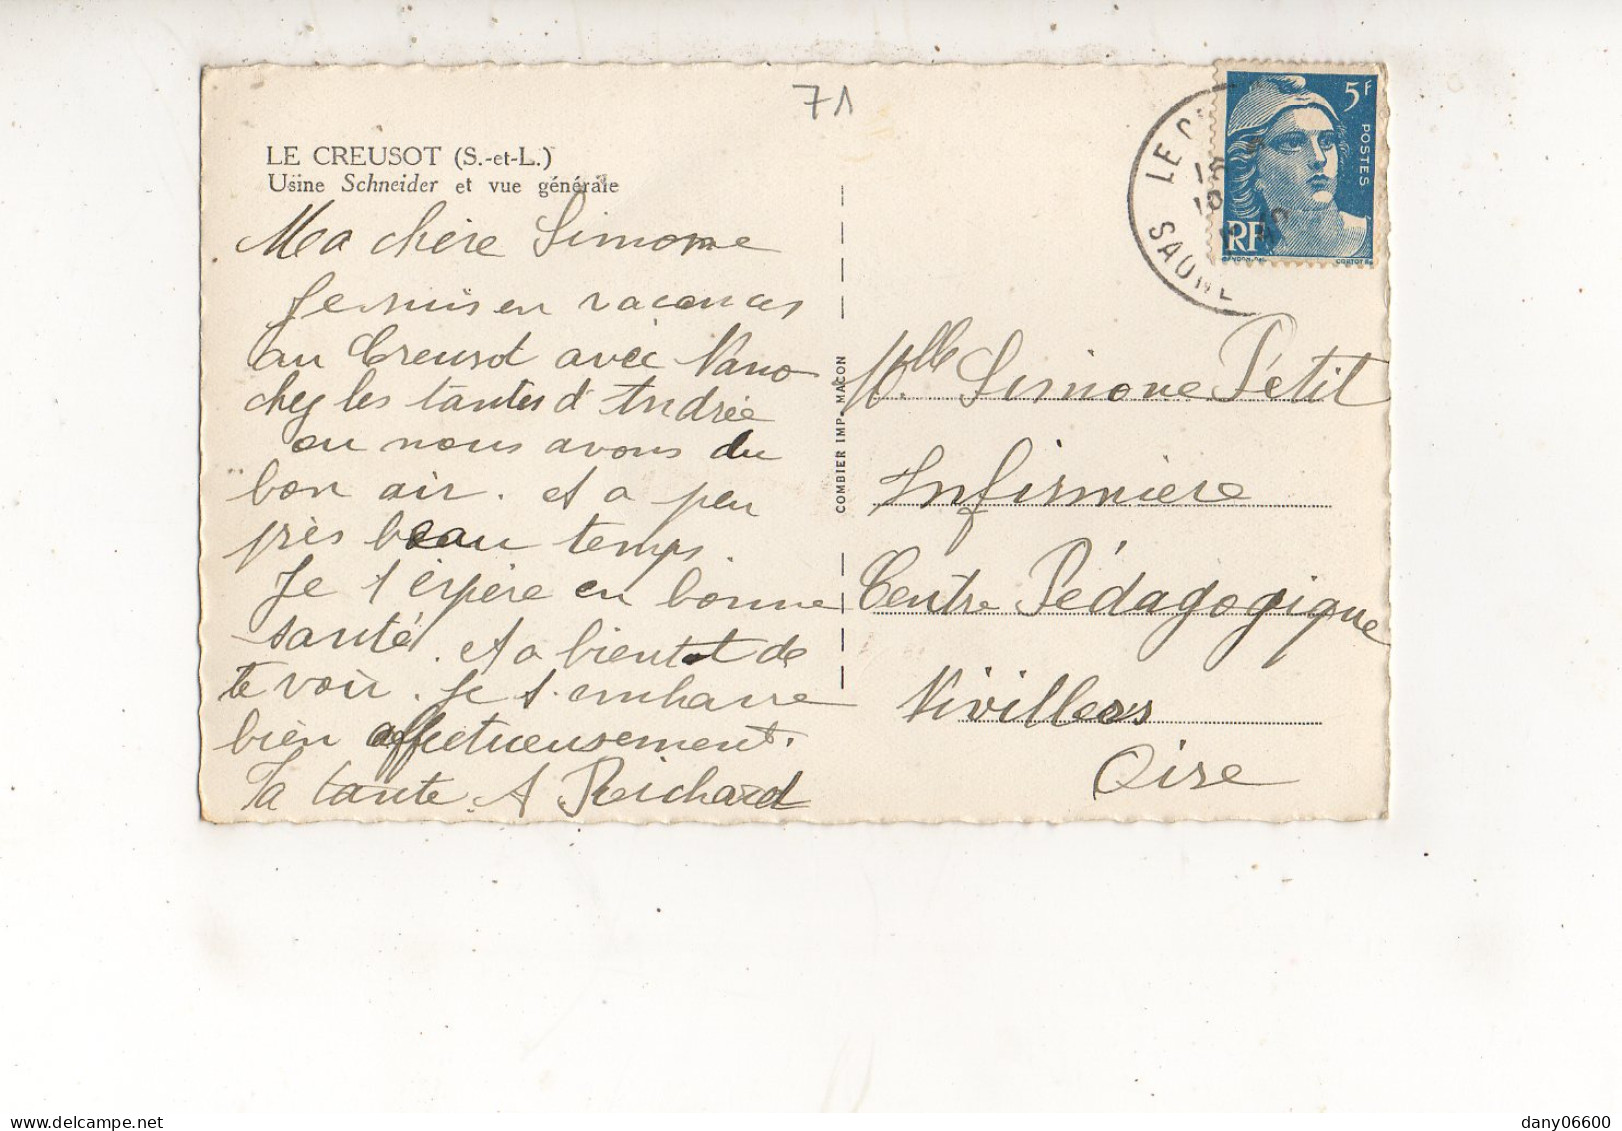 71
LE CREUSOT (S.-et-L.)
Usine Schneider et vue générale
Ma chère Simone
Je suis en vacances
au Creusot avec Nano
chez les tantes d'Andrée
ou nous avons du
bon air. et a peu
près beau temps.
Je t'espère en bonne
santé. et a bientot de
te voir. Je t'embrasse
bien affectueusement.
Ta tante A Reichard
COMBIER IMP. MACON
5F
POSTES
RF
LE C
SAONE
Mlle. Simone Petit
Infirmiere
Centre Pédagogique
Vivillers
Oise
dany06600